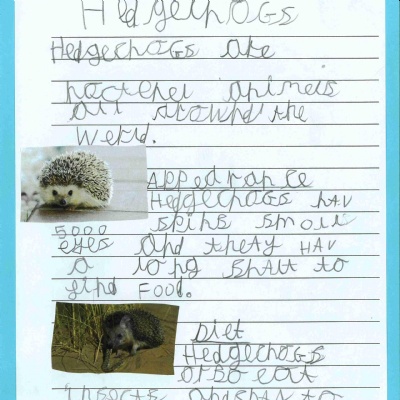 Hedgehogs
Hedgehogs are
nocternel animels
all around the
werld.
Appearance
Hedgehogs hav
5000 spins smoll
eyes and theay hav
a long snawt to
find Food.
Diet
Hedgehogs
also eat
insects